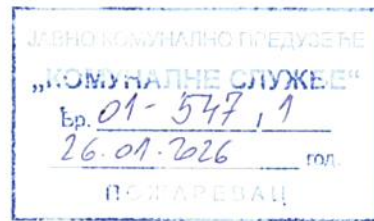 ЈАВНО КОМУНАЛНО ПРЕДУЗЕЋЕ
„КОМУНАЛНЕ СЛУЖБЕ“
Бр. 01-547,1
26.01.2026 год.
ПОЖАРЕВАЦ